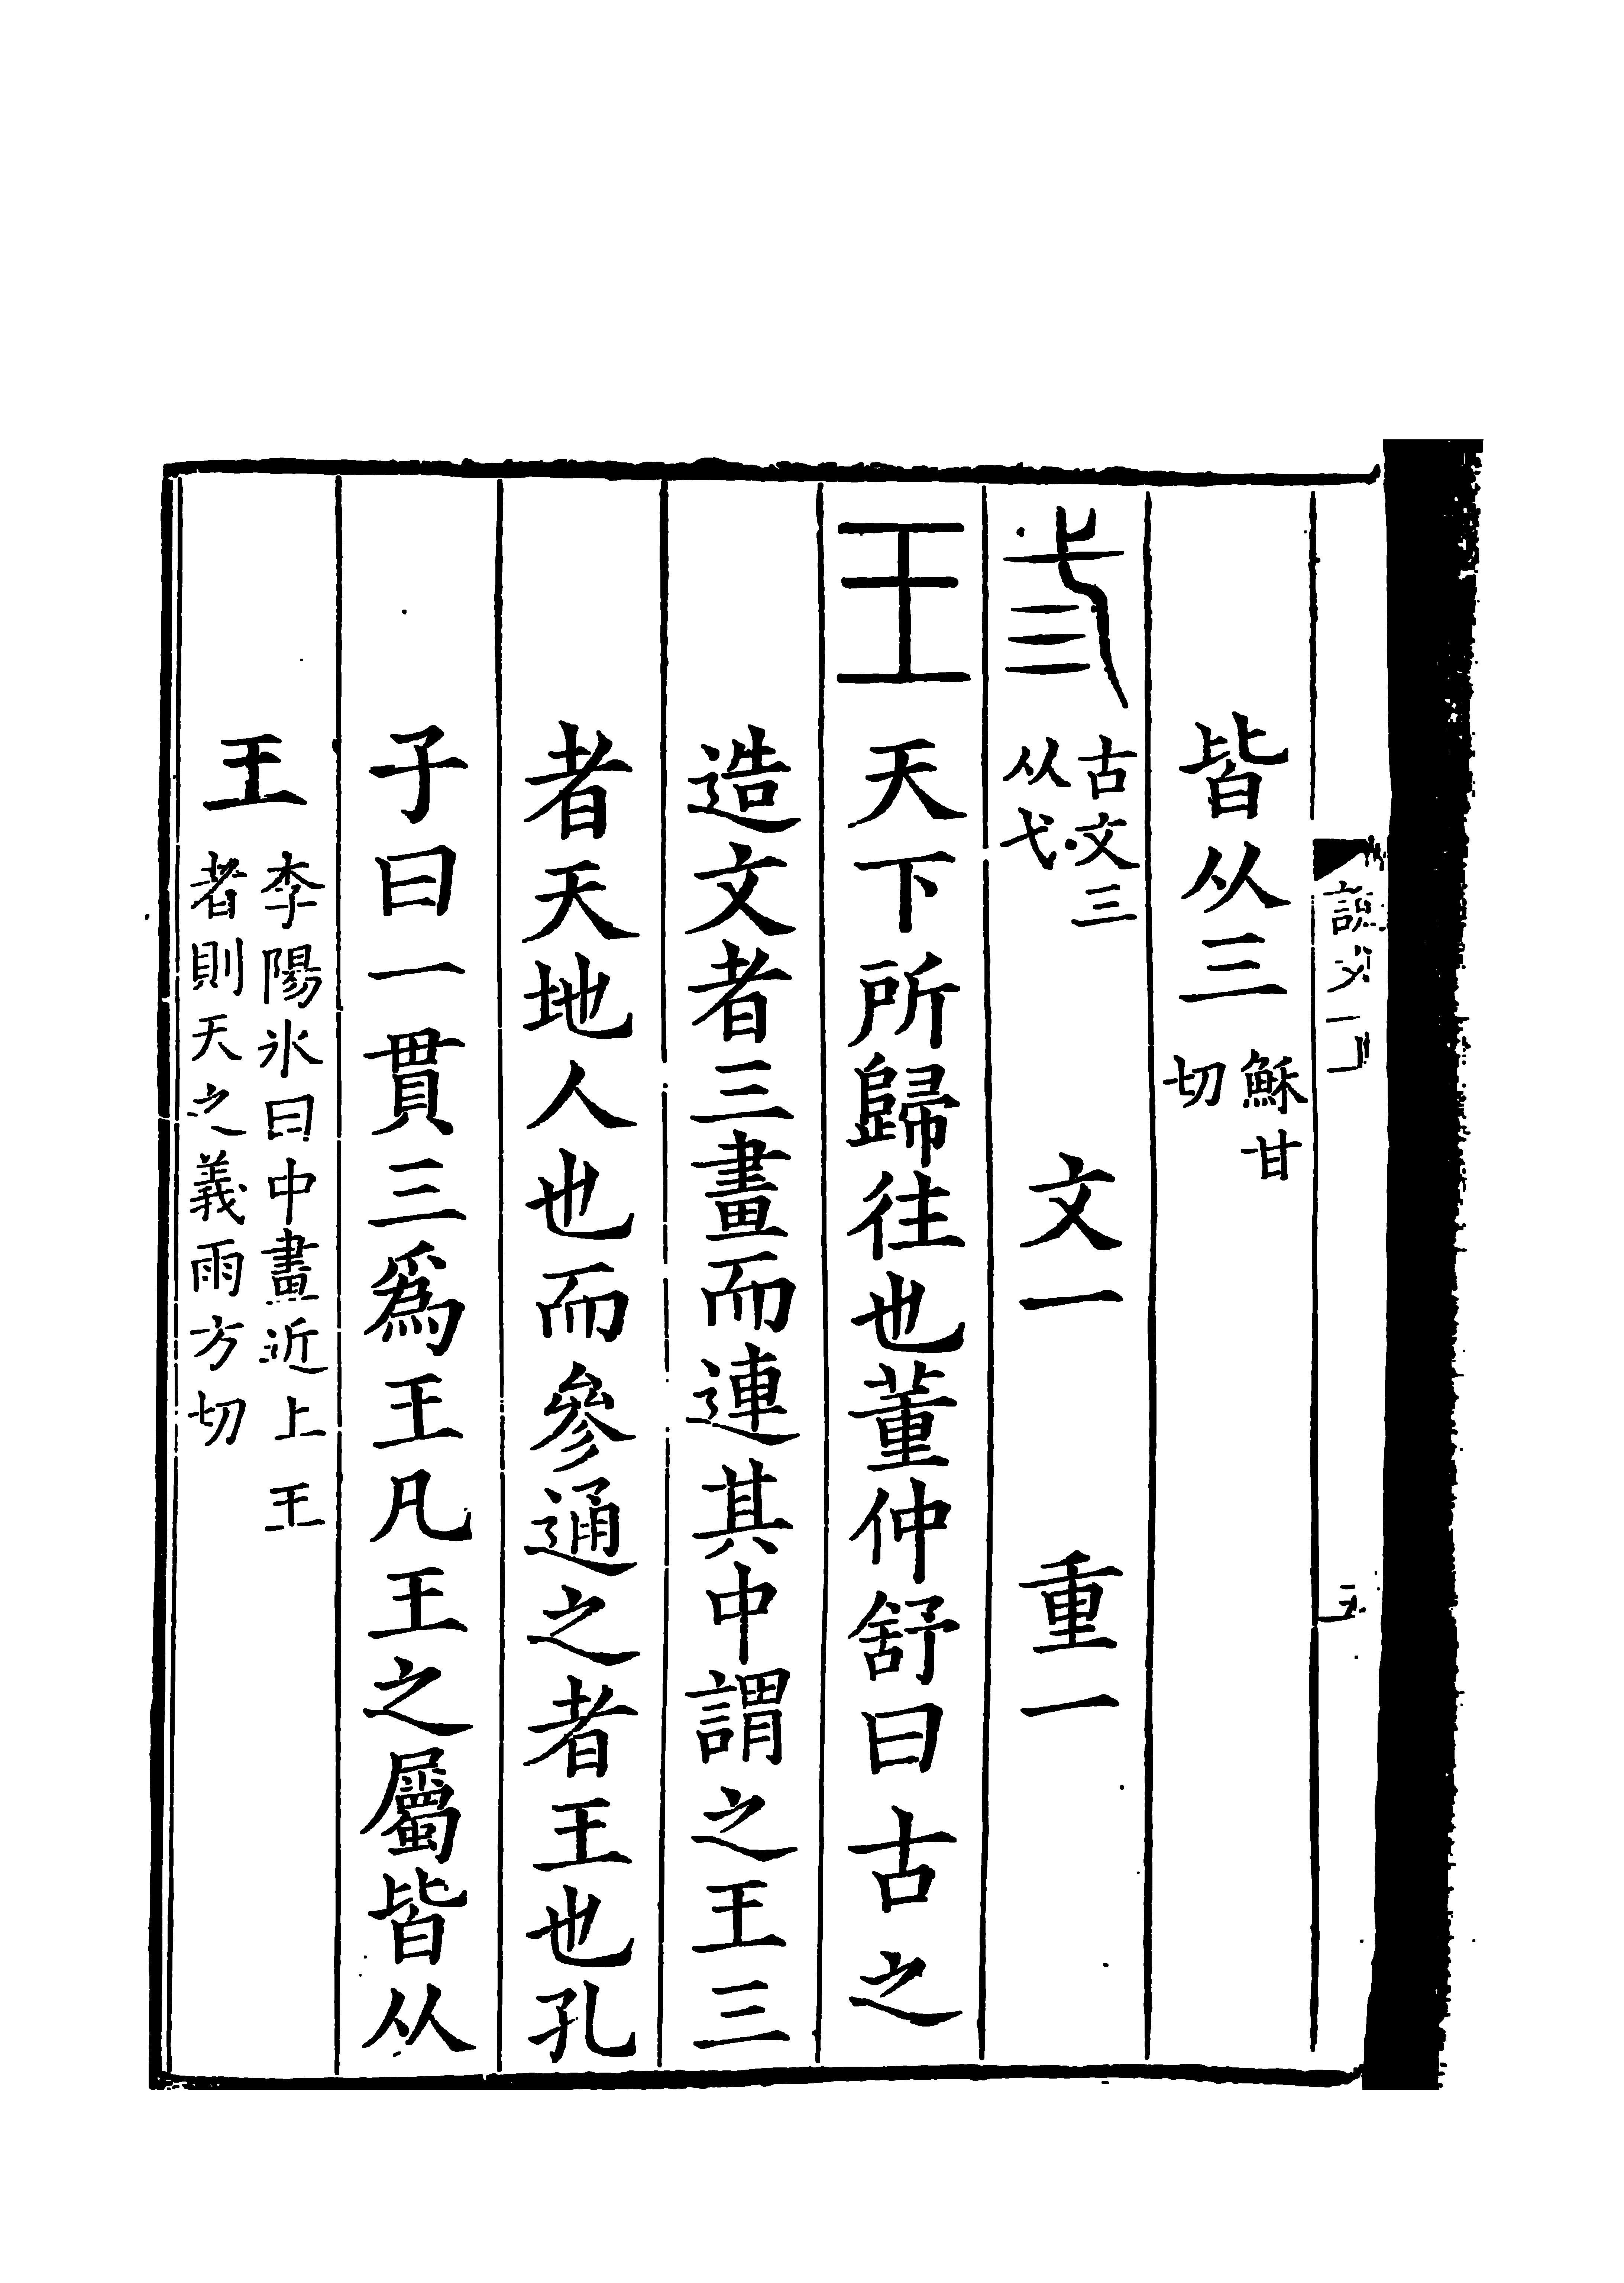 說文一上
五
皆从三穌甘切
弎古文三从弋 文一 重一
王天下所歸往也董仲舒曰古之
造文者三畫而連其中謂之王三
者天地人也而參通之者王也孔
子曰一貫三爲王凡王之屬皆从
王李陽冰曰中畫近上王者則天之義雨方切